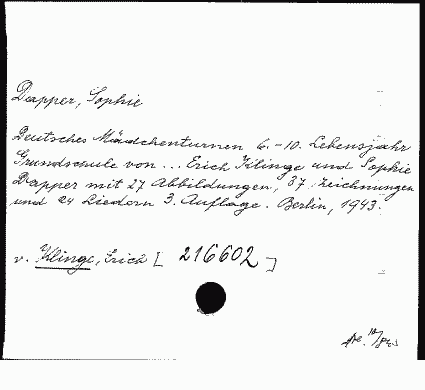 Dapper, Sophie
Deutsches Mädchenturnen 6.-10. Lebensjahr
Grundschule von ... Erich Klinge und Sophie
Dapper mit 27 Abbildungen, 37 Zeichnungen
und 24 Liedern 3. Auflage. Berlin, 1943.
v. Klinge, Erich [ 216602 ]